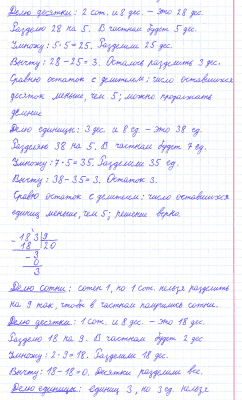 Делю десятки: 2 сот. и 8 дес. – это 28 дес.
Разделю 28 на 5. В частном будет 5 дес.
Умножу: 5·5=25. Разделили 25 дес.
Вычту: 28-25=3. Осталось разделить 3 дес.
Сравню остаток с делителем: число оставшихся
десяток меньше, чем 5; можно продолжать
деление
Делю единицы: 3 дес. и 8 ед. – это 38 ед.
Разделяю 38 на 5. В частном будет 7 ед.
Умножу: 7·5=35. Разделили 35 ед.
Вычту: 38-35=3. Остаток 3.
Сравню остаток с делителем: число оставшихся
единиц меньше, чем 5; решение верно.
-183|9
18 |20
-3
0
3
Делю сотни: сотен 1, но 1 сот. нельзя разделить
на 9 так, чтобы в частном получились сотни.
Делю десятки: 1 сот. и 8 дес. – это 18 дес.
Разделю 18 на 9. В частном будет 2 дес
Умножу: 2·9=18. Разделили 18 дес.
Вычту: 18-18=0. Десятки разделили все.
Делю единицы: единиц 3, но 3 ед. нельзя